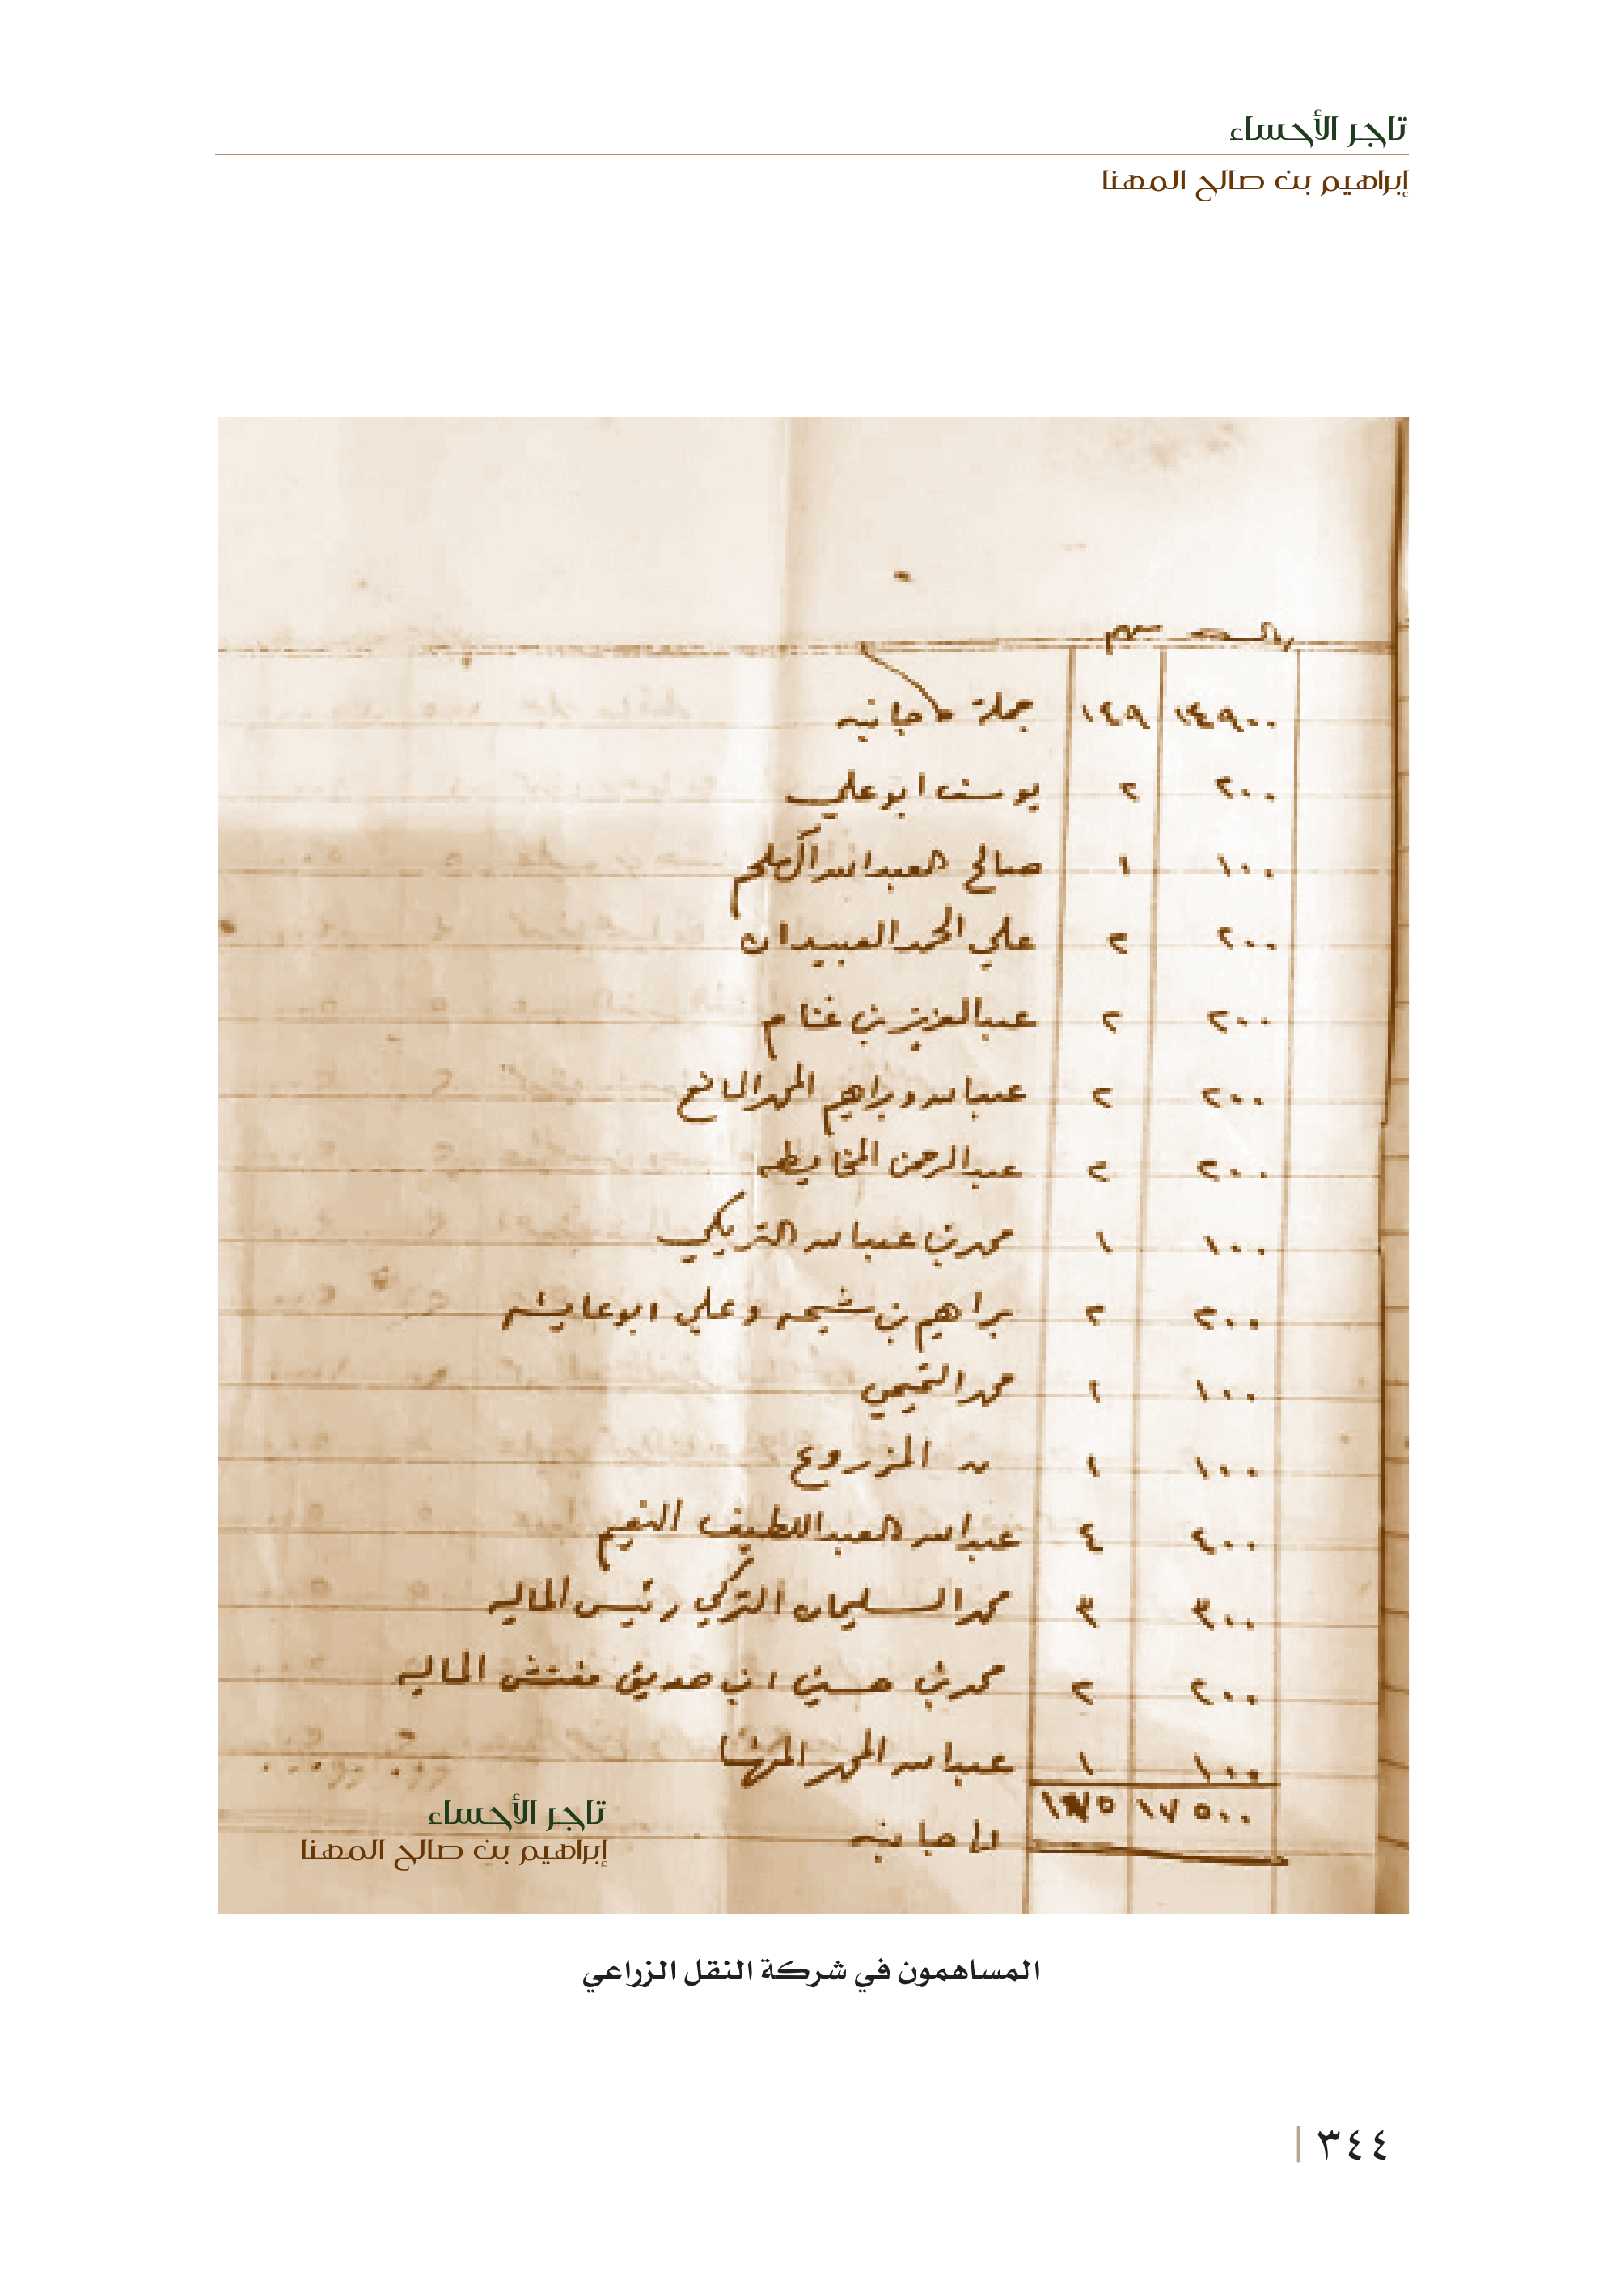 تاجر الأحساء
إبراهيم بن صالح المهنا
ريالـــ سهم
١٤٩٠٠ ١٤٩ جملة جانبه
٢٠٠ ٢ يوسف ابو علي
١٠٠ ١ صالح العبدالله الملحم
٢٠٠ ٢ علي الحمد العبيدان
٢٠٠ ٢ عبدالعزيز بن غنام
٢٠٠ ٢ عبدالله وبراهيم المحمد المانع
٢٠٠ ٢ عبدالرحمن المخايطه
١٠٠ ١ محمد بن عبدالله التريكي
٢٠٠ ٢ براهيم بن شيحه وعلي ابوعايشه
١٠٠ ١ محمد التميمي
١٠٠ ١ المزروع
٤٠٠ ٤ عبدالله العبداللطيف النعيم
٣٠٠ ٣ محمد السليمان التركي رئيس الماليه
٢٠٠ ٢ محمد بن حسين ابن صديق مفتش الماليه
١٠٠ ١ عبدالله المحمد المهنا
١٧٥٠٠ ١٧٥
تاجر الأحساء
إبراهيم بن صالح المهنا
المساهمون في شركة النقل الزراعي
٣٤٤